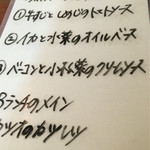 ① 牛すじとしめじのトマトソース
② イカと水菜のオイルベース
③ ベーコンと小松菜のクリームソース
Bランチのメイン
カツオのカツレツ